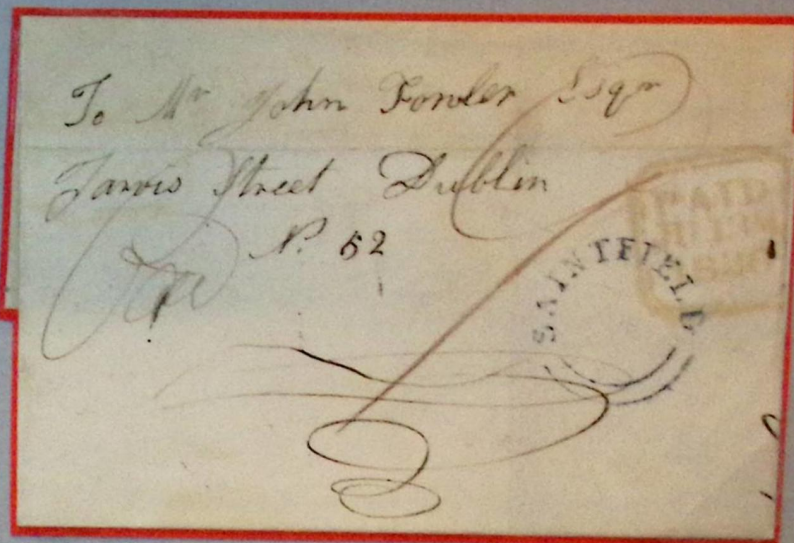 To Mr John Fowler Esqr
Jarvis Street Dublin
No. 52
SAINTFIELD
PAID